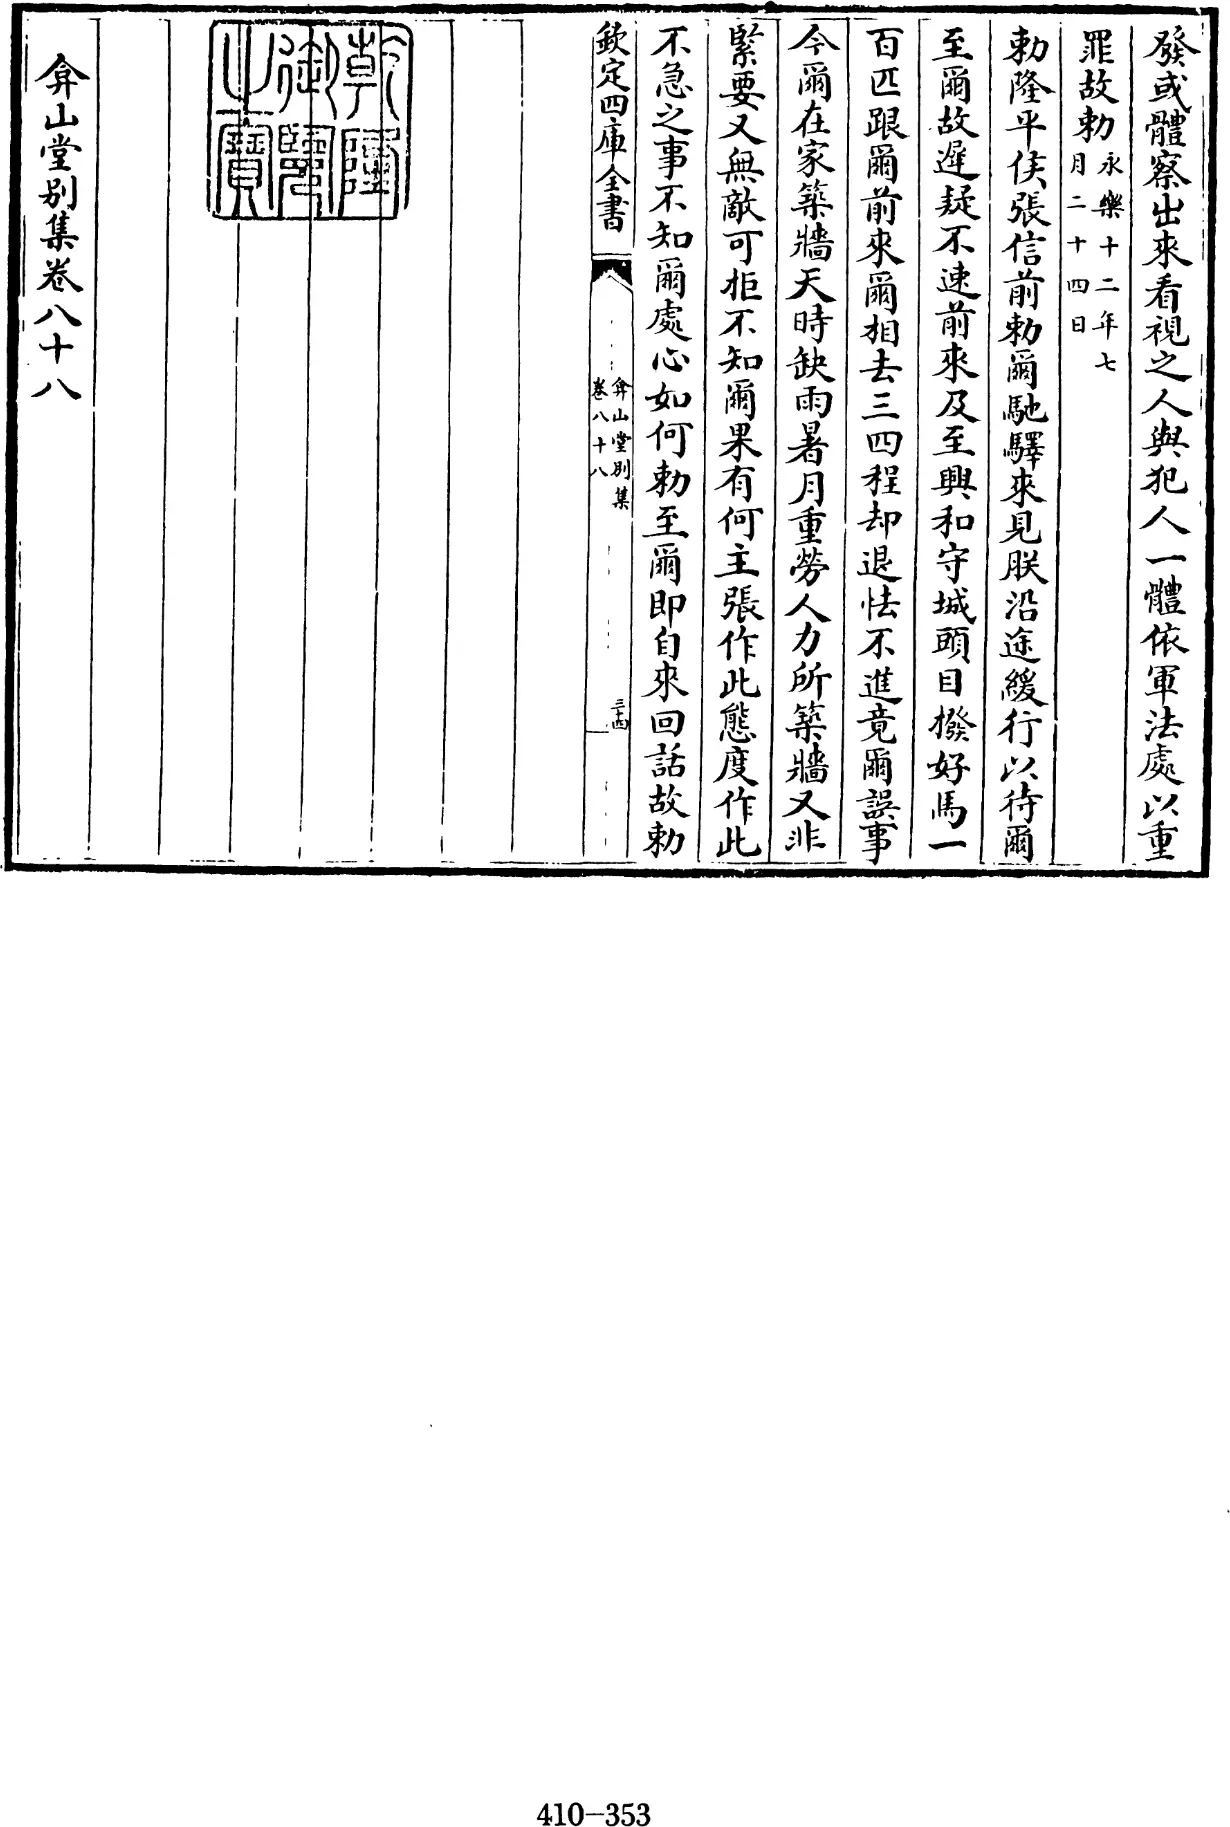 發或體察出來看視之人與犯人一體依軍法處以重
罪故勅永樂十二年七
月二十四日
勅隆平侯張信前勅爾馳驛來見朕沿途緩行以待爾
至爾故遲疑不速前來及至興和守城頭目撥好馬一
百匹跟爾前來爾相去三四程却退怯不進竟爾誤事
今爾在家築牆天時缺雨暑月重勞人力所築牆又非
緊要又無敵可拒不知爾果有何主張作此態度作此
不急之事不知爾處心如何勅至爾即自來回話故勅
欽定四庫全書
弇山堂別集
卷八十八
三十四
乾隆
御覽
之寶
弇山堂別集卷八十八
410-353